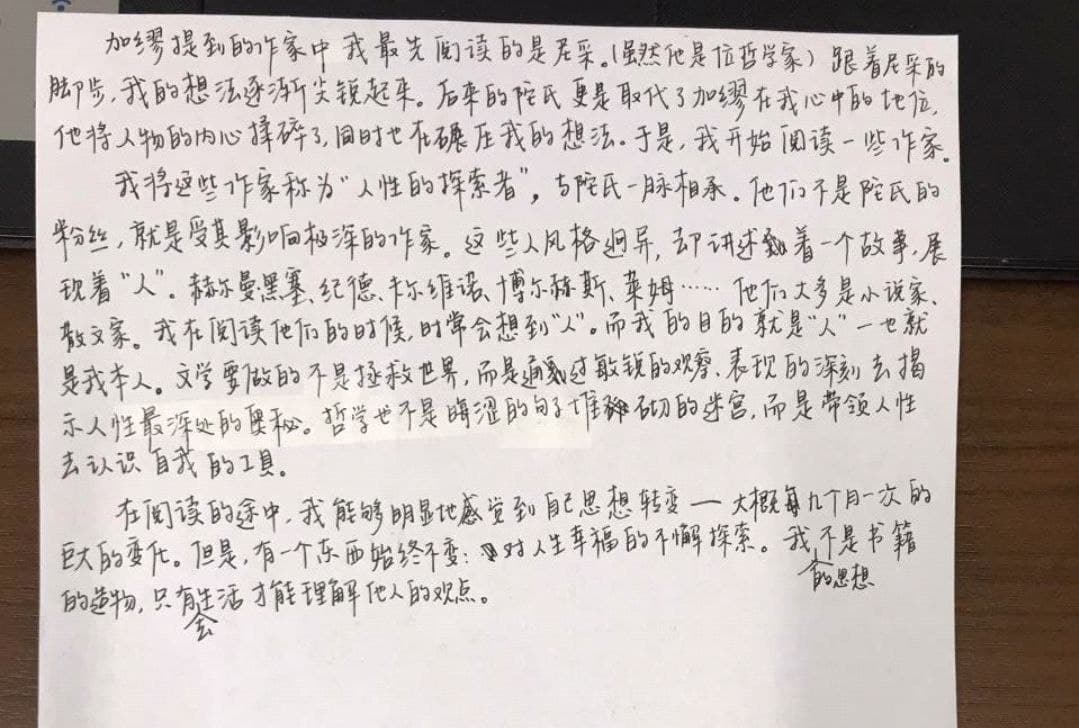 加缪提到的作家中我最先阅读的是尼采。(虽然他是位哲学家) 跟着尼采的
脚步，我的想法逐渐尖锐起来。后来的陀氏更是取代了加缪在我心中的地位，
他将人物的内心揉碎了，同时也在碾压我的想法。于是，我开始阅读一些作家。
我将这些作家称为“人性的探索者”，与陀氏一脉相承。他们不是陀氏的
粉丝，就是受其影响极深的作家。这些人风格迥异，却讲述着一个故事，展
现着“人”。赫尔曼黑塞、纪德、卡尔维诺、博尔赫斯、莱姆…… 他们大多是小说家、
散文家。我在阅读他们的时候，时常会想到“人”。而我的目的就是“人”—也就
是我本人。文学要做的不是拯救世界，而是通过敏锐的观察、表现的深刻去揭
示人性最深处的奥秘。哲学也不是晦涩的句子堆砌的迷宫，而是带领人性
去认识自我的工具。
在阅读的途中，我能够明显地感觉到自己思想转变 — 大概每几个月一次的
巨大的变化。但是，有一个东西始终不变：对人生幸福的不懈探索。我的思想不是书籍
的造物，只有去生活才能理解他人的观点。